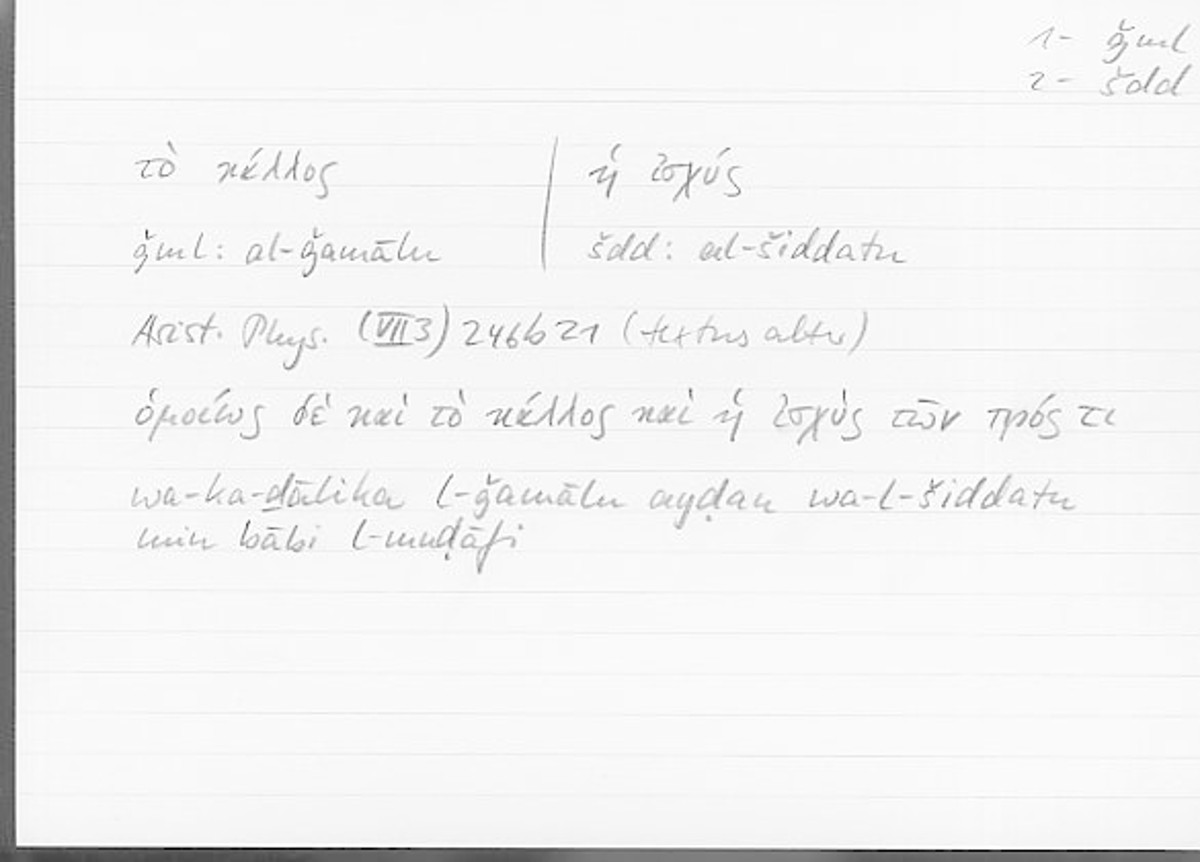 1- ǧml
2- šdd
τὸ κάλλος | ἡ ἰσχύς
ǧml: al-ǧamālu | šdd: al-šiddatu
Arist. Phys. (VII 3) 246b21 (textus alter)
ὁμοίως δὲ καὶ τὸ κάλλος καὶ ἡ ἰσχὺς τῶν πρός τι
wa-ka-ḏālika l-ǧamālu ayḍan wa-l-šiddatu
min bābi l-muḍāfi